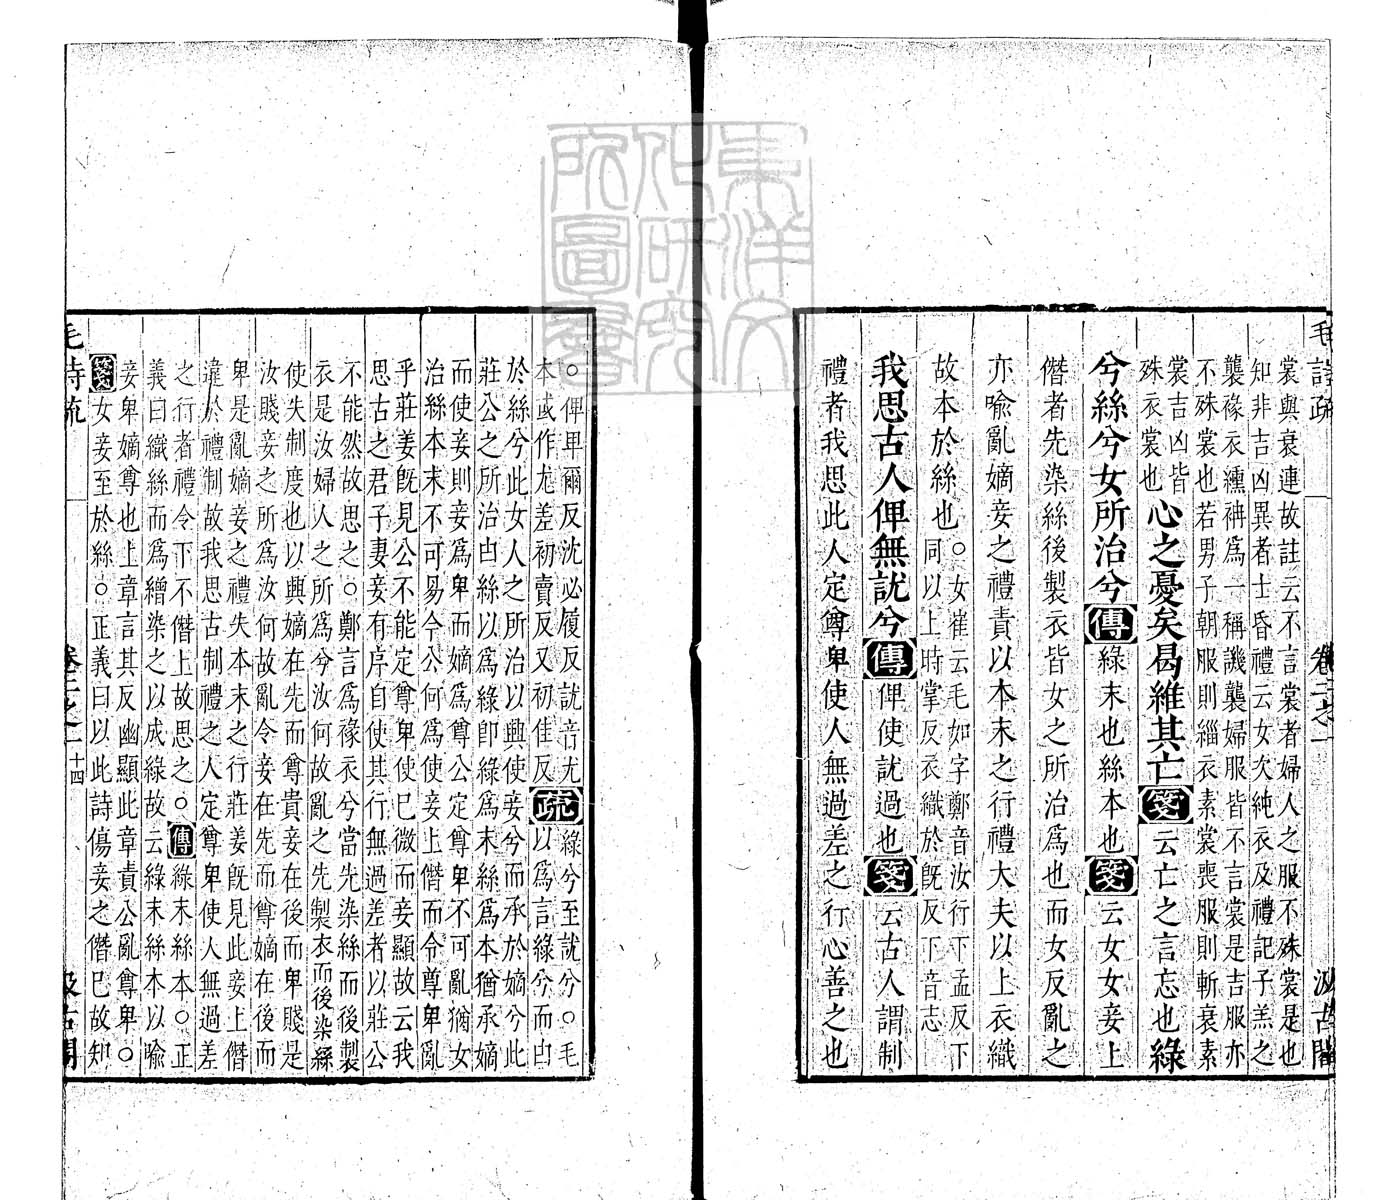 毛詩疏 卷二之一 汲古閣
裳與衰連故註云不言裳者婦人之服不殊裳是也
知非吉凶異者士昏禮云女次純衣及禮記子羔之
襲褖衣纁袡爲一稱譏襲婦服皆不言裳是吉服亦
不殊裳也若男子朝服則緇衣素裳喪服則斬衰素
裳吉凶皆
殊衣裳也
心之憂矣曷維其亡箋云亡之言忘也綠
兮絲兮女所治兮傳綠末也絲本也箋云女女妾上
僭者先染絲後製衣皆女之所治爲也而女反亂之
亦喻亂嫡妾之禮責以本末之行禮大夫以上衣織
故本於絲也○女崔云毛如字鄭音汝行下孟反下
同以上時掌反衣織於旣反下音志
我思古人俾無訧兮傳俾使訧過也箋云古人謂制
禮者我思此人定尊卑使人無過差之行心善之也
○俾卑爾反沈必履反訧音尤
本或作尤差初賣反又初佳反
疏綠兮至訧兮○毛
以爲言綠兮而由
於絲兮此女人之所治以興使妾兮而承於嫡兮此
莊公之所治由絲以爲綠卽綠爲末絲爲本猶承嫡
而使妾則妾爲卑而嫡爲尊公定尊卑不可亂猶女
治絲本末不可易今公何爲使妾上僭而令尊卑亂
乎莊姜旣見公不能定尊卑使已微而妾顯故云我
思古之君子妻妾有序自使其行無過差者以莊公
不能然故思之○鄭言爲褖衣兮當先染絲而後製
衣是汝婦人之所爲兮汝何故亂之先製衣而後染絲
使失制度也以興嫡在先而尊貴妾在後而卑賤是
汝賤妾之所爲汝何故亂令妾在先而尊嫡在後而
卑是亂嫡妾之禮失本末之行莊姜旣見此妾上僭
違於禮制故我思古制禮之人定尊卑使人無過差
之行者禮令下不僭上故思之○傳綠末絲本○正
義曰織絲而爲繒染之以成綠故云綠末絲本以喻
妾卑嫡尊也上章言其反幽顯此章責公亂尊卑○
箋女妾至於絲○正義曰以此詩傷妾之僭巳故知
毛詩疏 卷二之一 十四 汲古閣
東洋文化研究所圖書